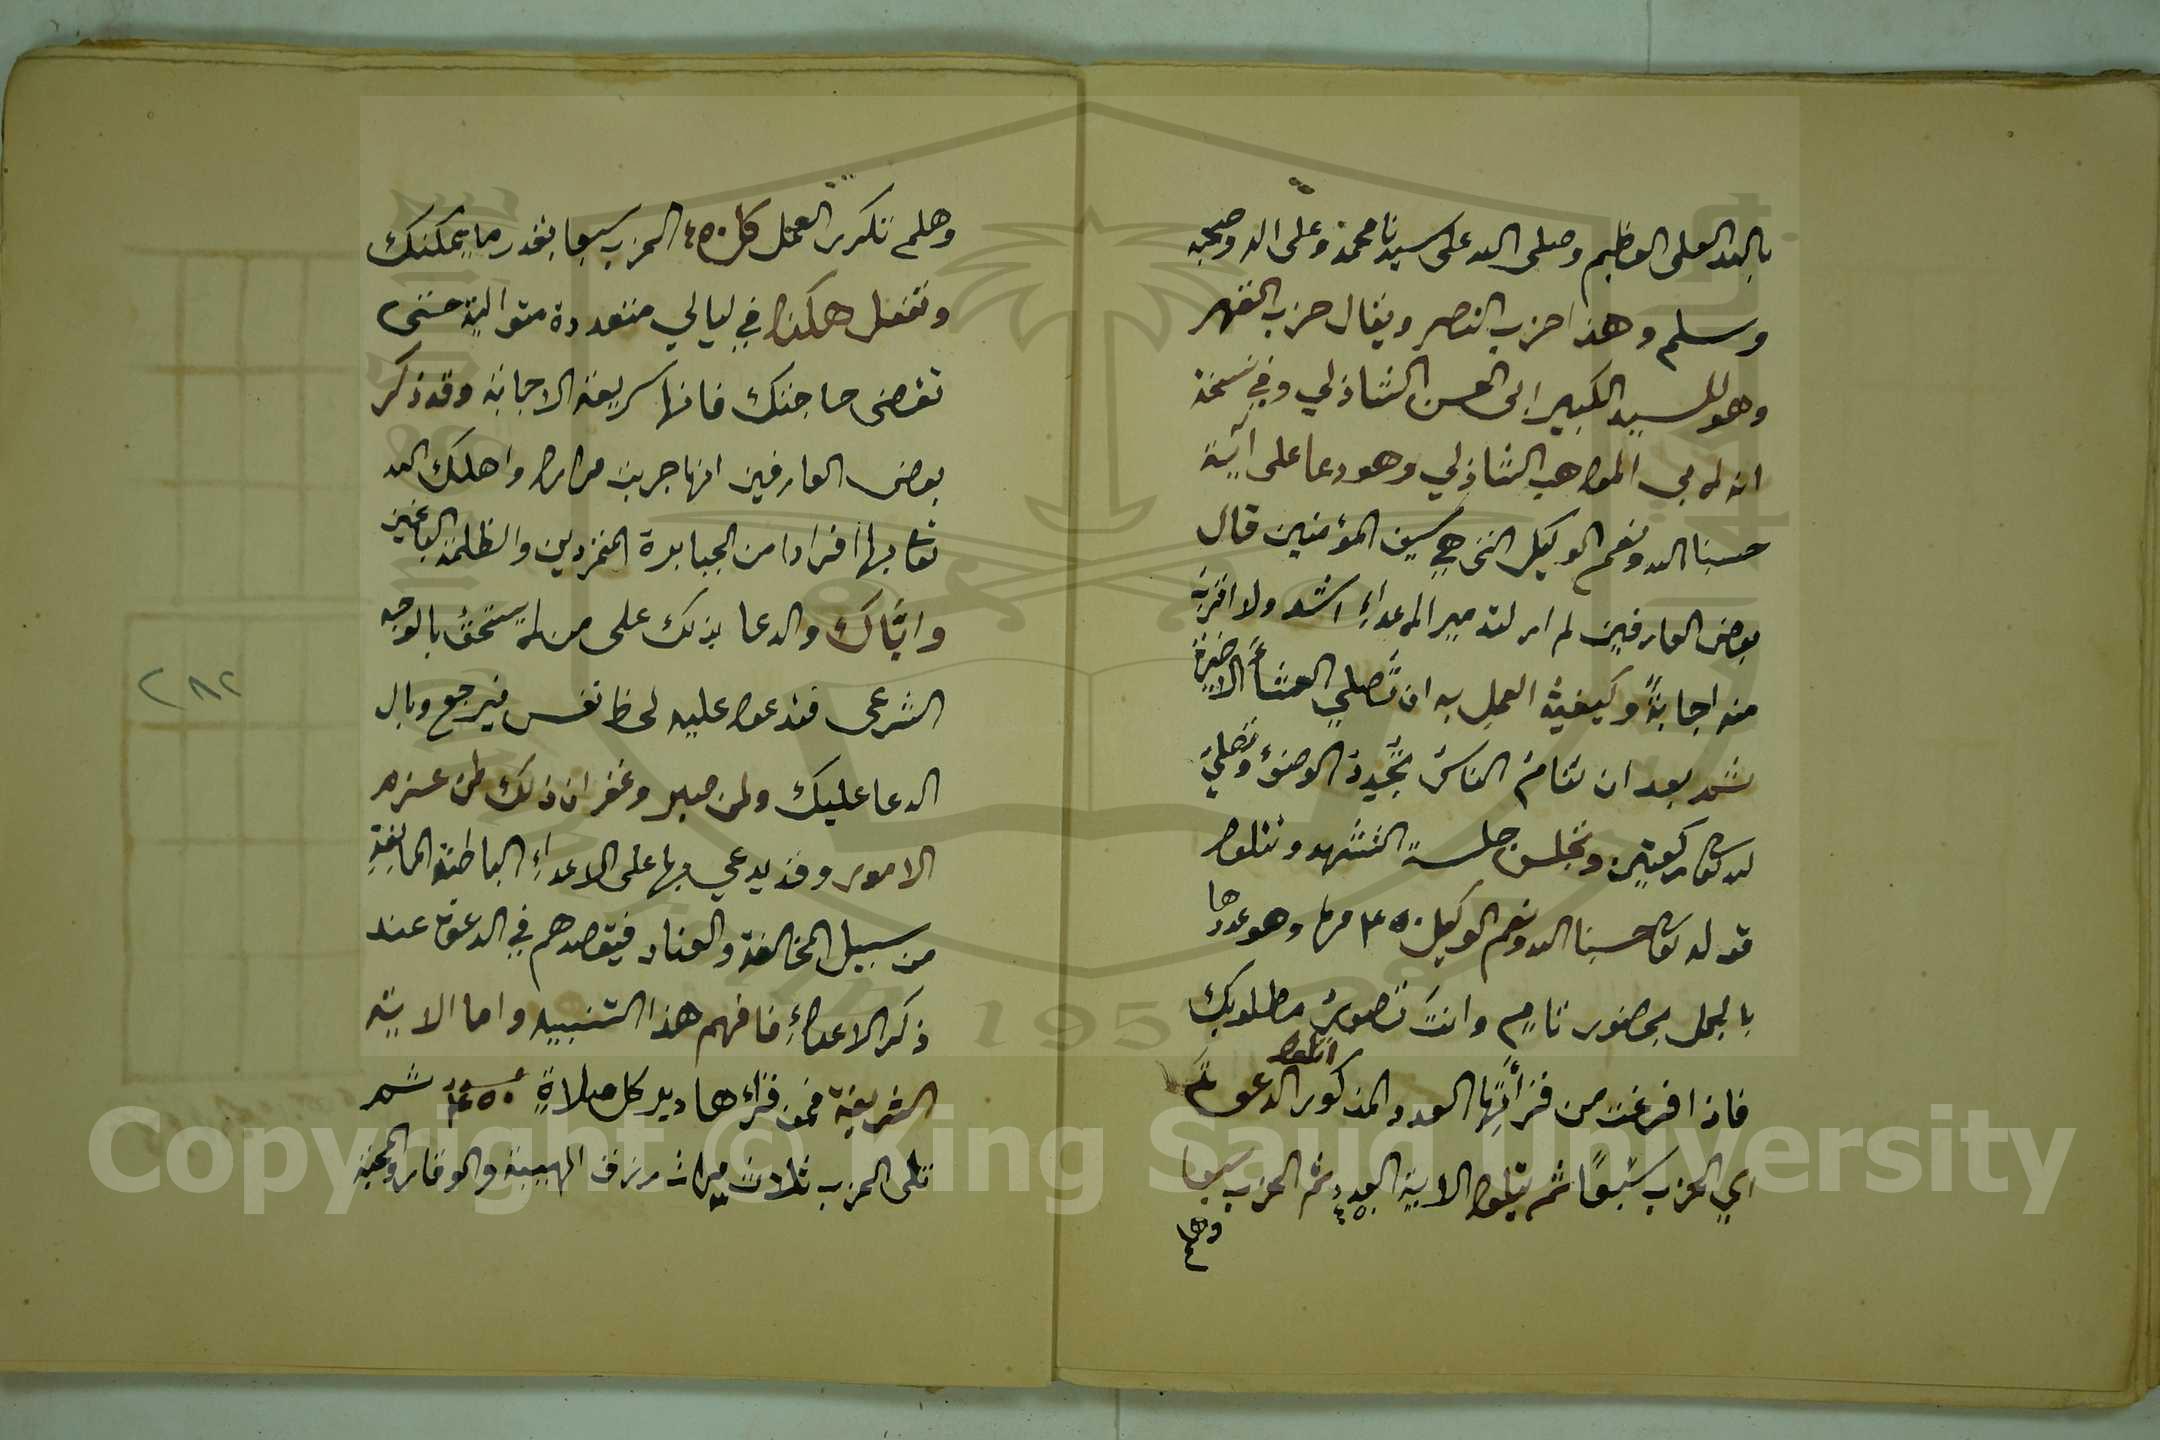 بالله العلى العظيم وصلى الله على سيدنا محمد وعلى اله وصحبه
وسلم وهذا حزب النصر ويقال حزب القهر
وهو للسيد الكبير ابى الحسن الشاذلي وفي نسخة
انه لابي المواهب الشاذلي وهو دعا على آية
حسبنا الله ونعم الوكيل التى هي سيف المؤمنين قال
بعض العارفين لم ار لتدمير الاعداءِ اشد ولا اقرب
منه اجابةً وكيفية العمل به ان تصلي العشاء الاخيرة
ثم بعد ان تنام الناس تجيدد الوضوء وتصلي
لله تعا ركعتين وتجلس جلسة التشهد وتتلوا
قوله تعا حسبنا الله ونعم الوكيل ٤٥٠ مرة وهو عددها
بالجمل بحضور تام وانت تصور مطلوبك
فاذا فرغت من قرأتها العدد المذكور اتلوا الدعوة
اي الحزب سبعًا ثم تتلوا الاية العدد ٤٥٠ ثم الحزب سبعا
وهلم
وهلم تكرر العمل كل ٤٥٠ الحزب سبعا بقدر ما يمكنك
وتفعل هكذا في ليالي متعددة متوالية حتى
تقضى حاجتك فانها سريعة الاجابة وقد ذكر
بعض العارفين انها جربت مرارا واهلك الله
تعا بها افرادا من الجبابرة المتمردين والظلمة الباغين
واياك والدعا بذلك على من لم يستحق بالوجه
الشرعى فتدعوا عليه لحظ نفس فيرجع وبال
الدعا عليك ولمن صبر وغفر ان ذلك لمن عزم
الامور وقد يدعي بها على الاعداءِ الباطنة المانعة
من سبيل المخالفة والعناد فيقصدهم في الدعوة عند
ذكر الاعداءِ فافهم هذا التنبيه واما الاية
الشريفة فمن قراءها دبر كل صلاةٍ ٤٥٠ ثم
تلى الحزب ثلاث مرات رزق الهيبة والوقار والمحبة
٢٨٢
Copyright © King Saud University
1957